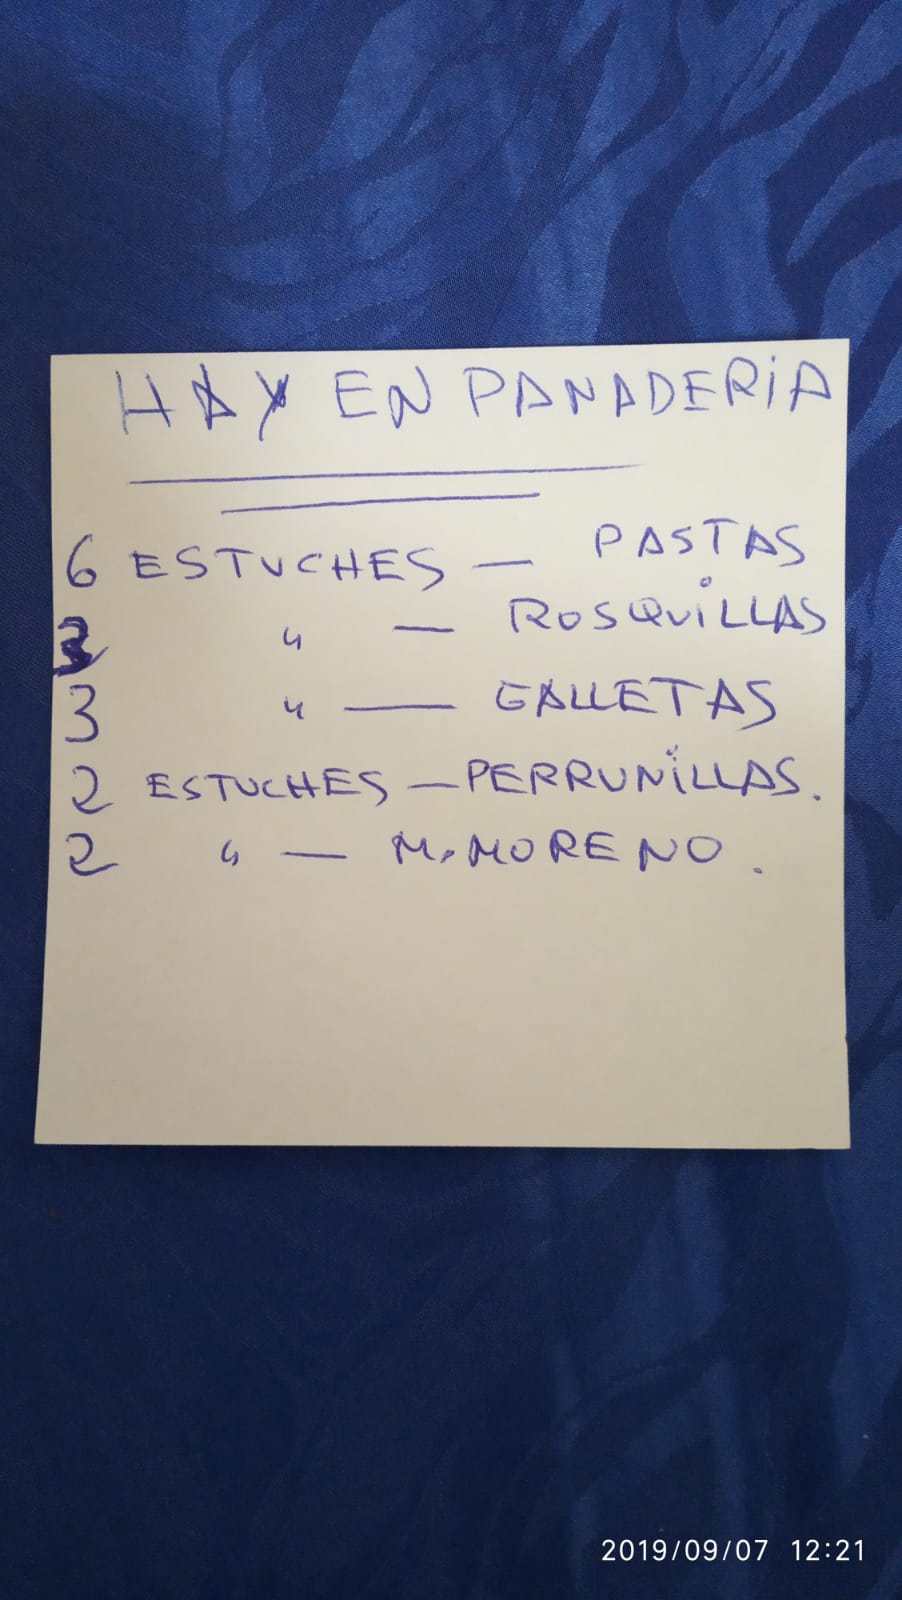 HAY EN PANADERiA
6 ESTUCHES — PASTAS
" — ROSQUiLLAS
3 " — GALLETAS
2 ESTUCHES — PERRUNiLLAS.
2 " — M. MORENO.
2019/09/07 12:21